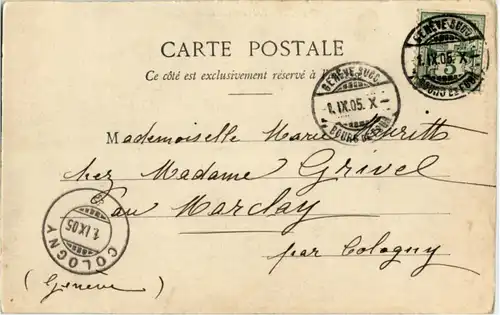 CARTE POSTALE
Ce côté est exclusivement réservé à l'
GENÈVE SUCC.
1. IX. 05. X
BOURG DE FOUR
5
GENÈVE SUCC.
1. IX. 05. X
BOURG DE FOUR
Mademoiselle Marie
chez Madame Grivel
au Marclay
par Cologny
(Genève)
1. IX 05
COLOGNY